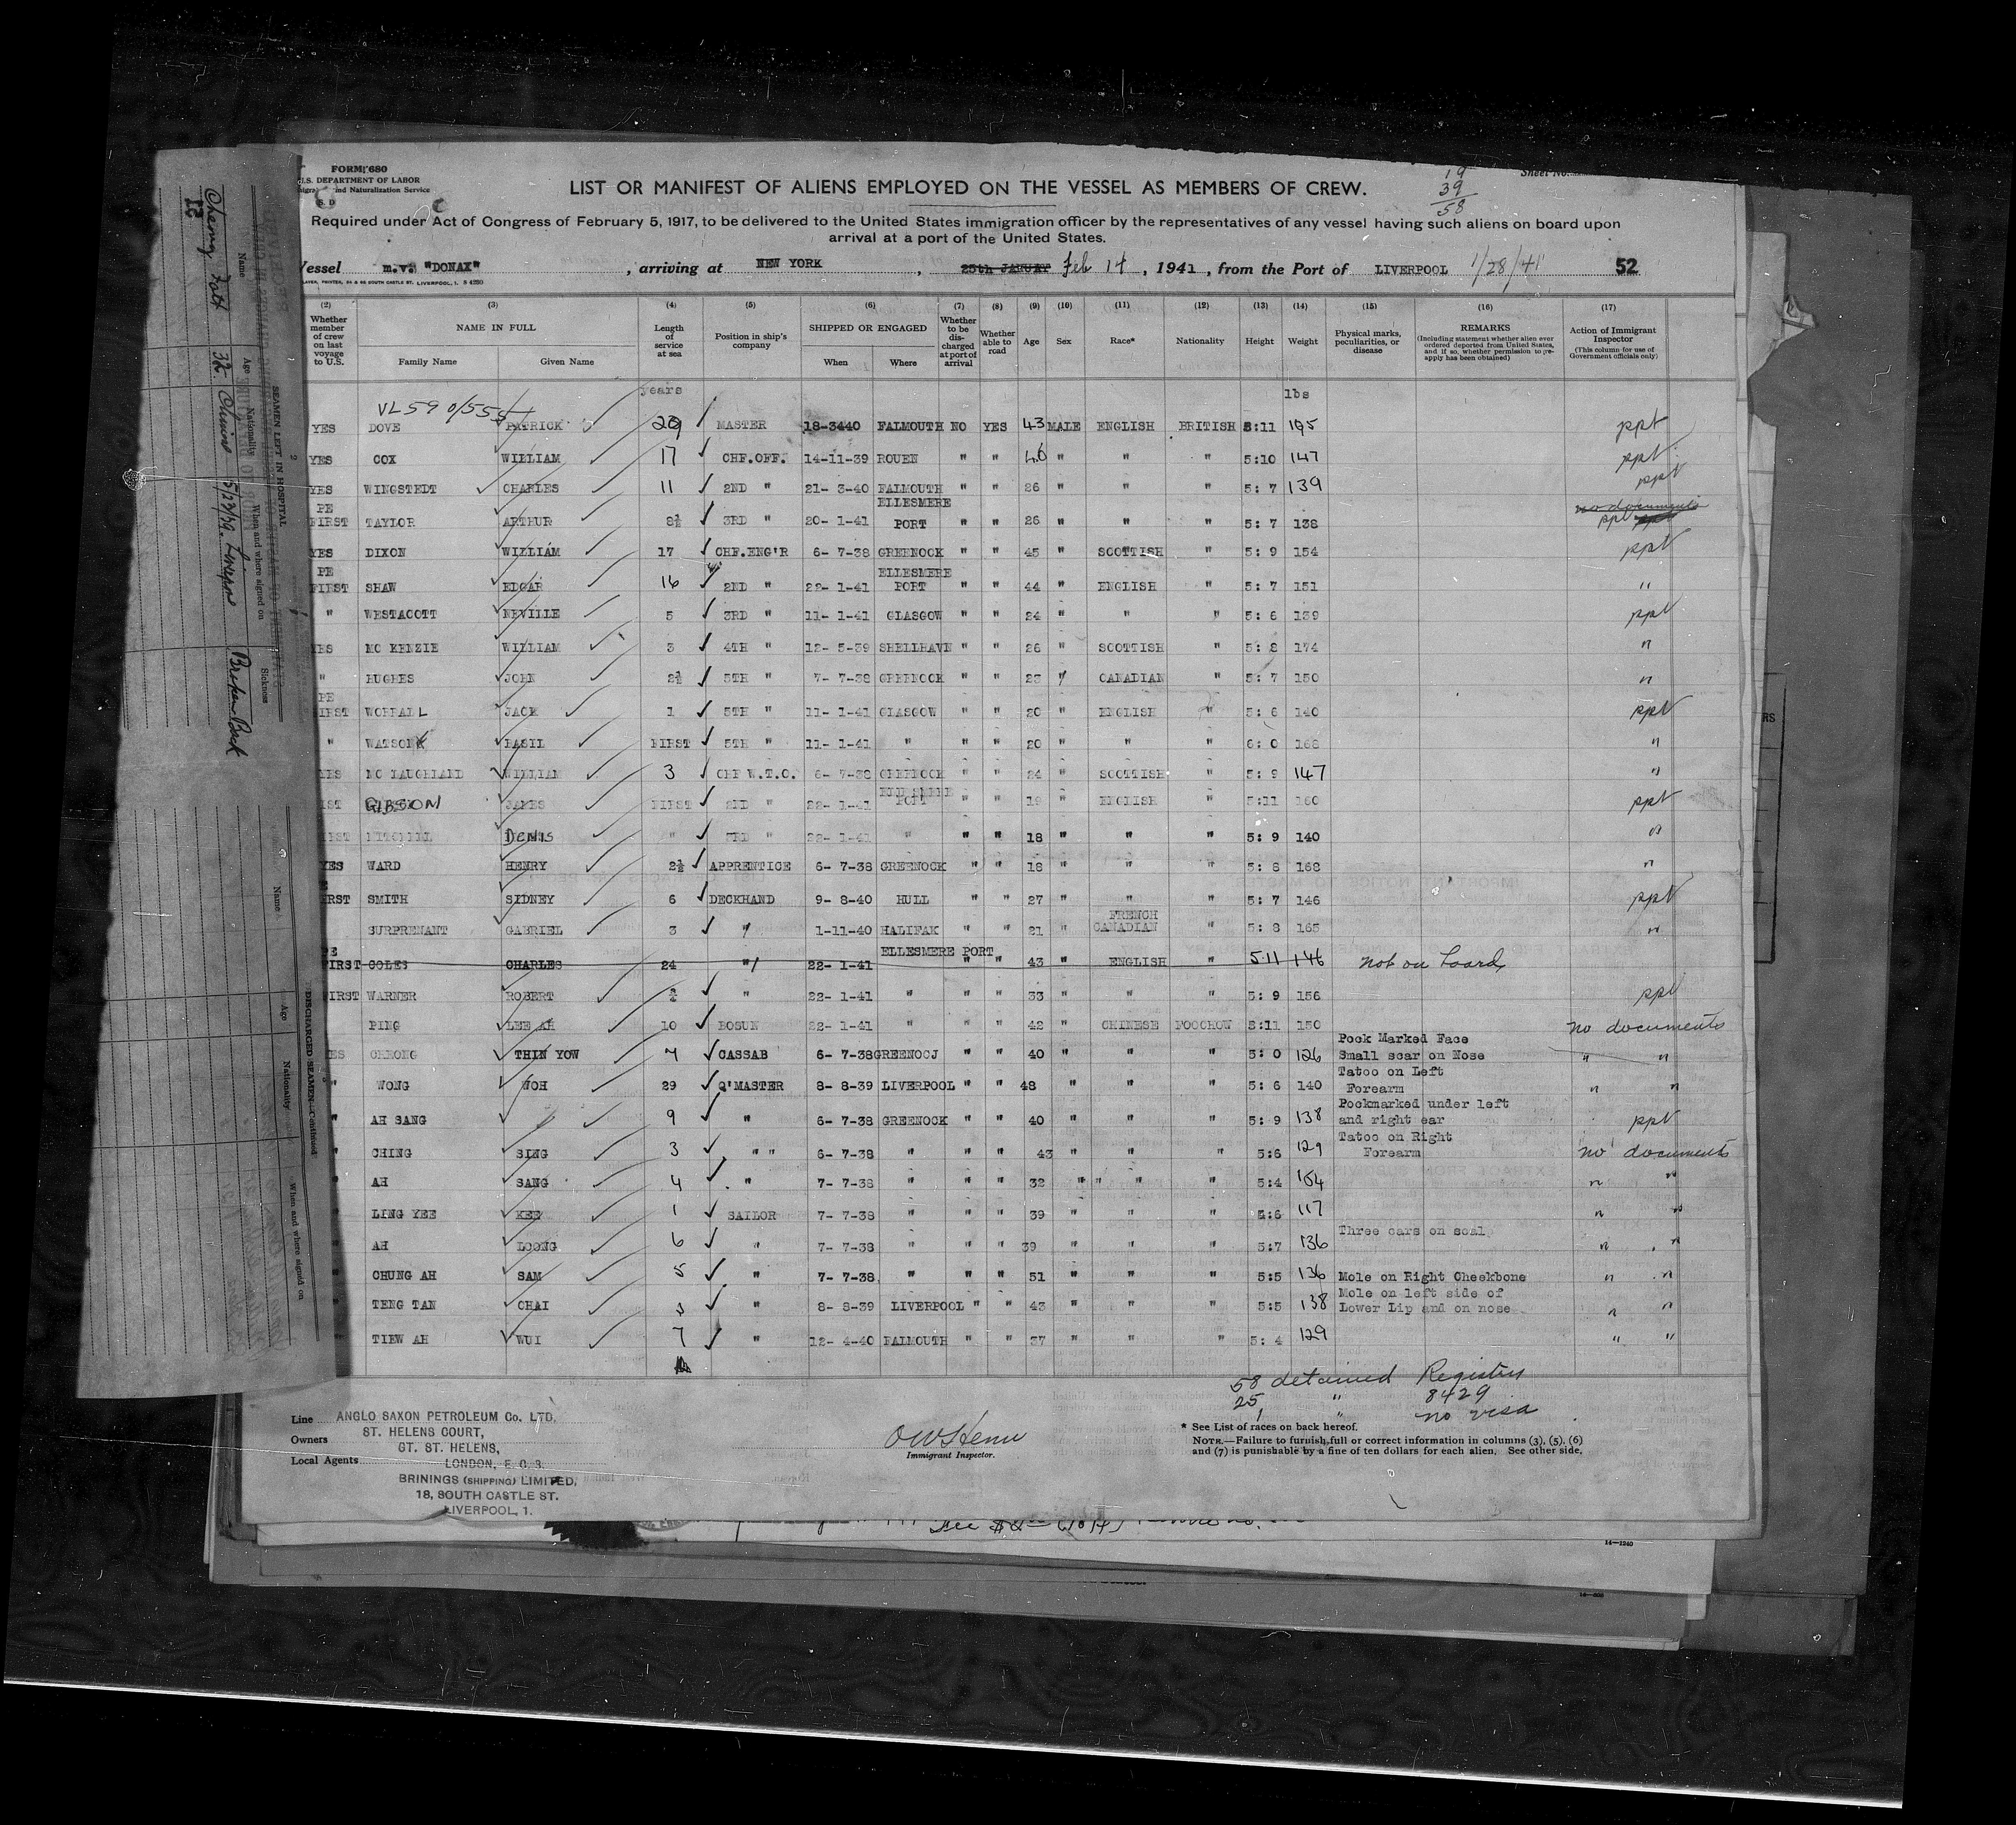 FORM 680
U.S. DEPARTMENT OF LABOR
and Naturalization Service
19
39
58
Sheet No.
LIST OR MANIFEST OF ALIENS EMPLOYED ON THE VESSEL AS MEMBERS OF CREW.
Required under Act of Congress of February 5, 1917, to be delivered to the United States immigration officer by the representatives of any vessel having such aliens on board upon
arrival at a port of the United States.
Vessel m.v. "DONAX" , arriving at NEW YORK , 25th JANUARY Feb 14 , 1941 , from the Port of LIVERPOOL 1/28/41 52
(2) (3) (4) (5) (6) (7) (8) (9) (10) (11) (12) (13) (14) (15) (16) (17)
Whether member of crew on last voyage to U.S.
NAME IN FULL
Family Name Given Name
Length of service at sea
Position in ship's company
SHIPPED OR ENGAGED
When Where
Whether to be discharged at port of arrival
Whether able to read
Age Sex Race* Nationality Height Weight
Physical marks, peculiarities, or disease
REMARKS
(Including statement whether alien ever ordered deported from United States, and if so, whether permission to re-apply has been obtained)
Action of Immigrant Inspector
(This column for use of Government officials only)
years lbs
YES DOVE PATRICK 29 MASTER 18-3440 FALMOUTH NO YES 43 MALE ENGLISH BRITISH 5:11 195 ppt
YES COX WILLIAM 17 CHF.OFF. 14-11-39 ROUEN " " 46 " " " 5:10 147 ppt
YES WINGSTEDT CHARLES 11 2ND " 21- 3-40 FALMOUTH " " 26 " " " 5: 7 139 ppt
FIRST TAYLOR ARTHUR 8½ 3RD " 20- 1-41 ELLESMERE PORT " " 26 " " " 5: 7 138 no documents ppt
YES DIXON WILLIAM 17 CHF.ENG'R 6- 7-38 GREENOCK " " 45 " SCOTTISH " 5: 9 154 ppt
FIRST SHAW EDGAR 16 2ND " 22- 1-41 ELLESMERE PORT " " 44 " ENGLISH " 5: 7 151 "
" WESTACOTT NEVILLE 5 3RD " 11- 1-41 GLASGOW " " 24 " " " 5: 6 139 ppt
YES MC KENZIE WILLIAM 3 4TH " 12- 5-39 SHELLHAVN " " 26 " SCOTTISH " 5: 8 174 "
" HUGHES JOHN 2½ 5TH " 7- 7-38 GREENOCK " " 23 " CANADIAN " 5: 7 150 "
FIRST WORRALL JACK 1 5TH " 11- 1-41 GLASGOW " " 20 " ENGLISH " 5: 6 140 ppt
" WATSON BASIL FIRST 5TH " 11- 1-41 " " " 20 " " " 6: 0 168 "
YES MC LAUGHLAND WILLIAM 3 CHF W.T.O. 6- 7-38 GREENOCK " " 24 " SCOTTISH " 5: 9 147 "
GIBSON JAMES FIRST 2ND " 22- 1-41 ELLESMERE PORT " " 19 " ENGLISH " 5:11 160 ppt
MITCHELL DENIS " 3RD " 22- 1-41 " " " 18 " " " 5: 9 140 "
YES WARD HENRY 2½ APPRENTICE 6- 7-38 GREENOCK " " 18 " " " 5: 8 168 "
FIRST SMITH SIDNEY 6 DECKHAND 9- 8-40 HULL " " 27 " " " 5: 7 146 ppt
SURPRENANT GABRIEL 3 " 1-11-40 HALIFAX " " 21 " FRENCH CANADIAN " 5: 8 165 "
FIRST COLES CHARLES 24 " 22- 1-41 ELLESMERE PORT " " 43 " ENGLISH " 5 11 146 not on board
FIRST WARNER ROBERT " 22- 1-41 " " " 33 " " " 5: 9 156 ppt
PING LEE AH 10 BOSUN 22- 1-41 " " " 42 " CHINESE FOOCHOW 5:11 150 no documents
YES CHEONG THIN YOW 7 CASSAB 6- 7-38 GREENOCJ " " 40 " " " 5: 0 126 Pock Marked Face Small scar on Nose " "
" WONG WOH 29 Q'MASTER 8- 8-39 LIVERPOOL " " 48 " " " 5: 6 140 Tatoo on Left Forearm " "
" AH SANG 9 " 6- 7-38 GREENOCK " " 40 " " " 5: 9 138 Pockmarked under left and right ear ppt
" CHING SING 3 " " 6- 7-38 " " " 43 " " " 5:6 129 Tatoo on Right Forearm no documents
" AH SANG 4 " 7- 7-38 " " " 32 " " " " 5:4 104 " "
" LING YEE KEE 1 SAILOR 7- 7-38 " " " 39 " " " 5:6 117 " "
" AH LOONG 6 " 7- 7-38 " " " 39 " " " 5:7 136 Three cars on scal " "
" CHUNG AH SAM 5 " 7- 7-38 " " " 51 " " " 5:5 136 Mole on Right Cheekbone " "
" TENG TAN CHAI 3 " 8- 8-39 LIVERPOOL " " 43 " " " 5:5 138 Mole on left side of Lower Lip and on nose " "
" TIEW AH WUI 7 " 12- 4-40 FALMOUTH " " 37 " " " 5: 4 129 " "
58 detained Registry
25 " 8429
1 " no visa
Line ANGLO SAXON PETROLEUM Co. LTD.
ST. HELENS COURT,
Owners GT. ST. HELENS,
Local Agents LONDON, E. C. 3.
BRININGS (SHIPPING) LIMITED,
18, SOUTH CASTLE ST.
LIVERPOOL, 1.
Immigrant Inspector.
* See List of races on back hereof.
NOTE.—Failure to furnish full or correct information in columns (3), (5), (6)
and (7) is punishable by a fine of ten dollars for each alien. See other side.
14—1240
SEAMEN LEFT IN HOSPITAL
Name Age Nationality When and where signed on Sickness
Cheong Fatt 32 Chinese Broken Back
12
DISCHARGED SEAMEN—Continued
Name Age Nationality When and where signed on